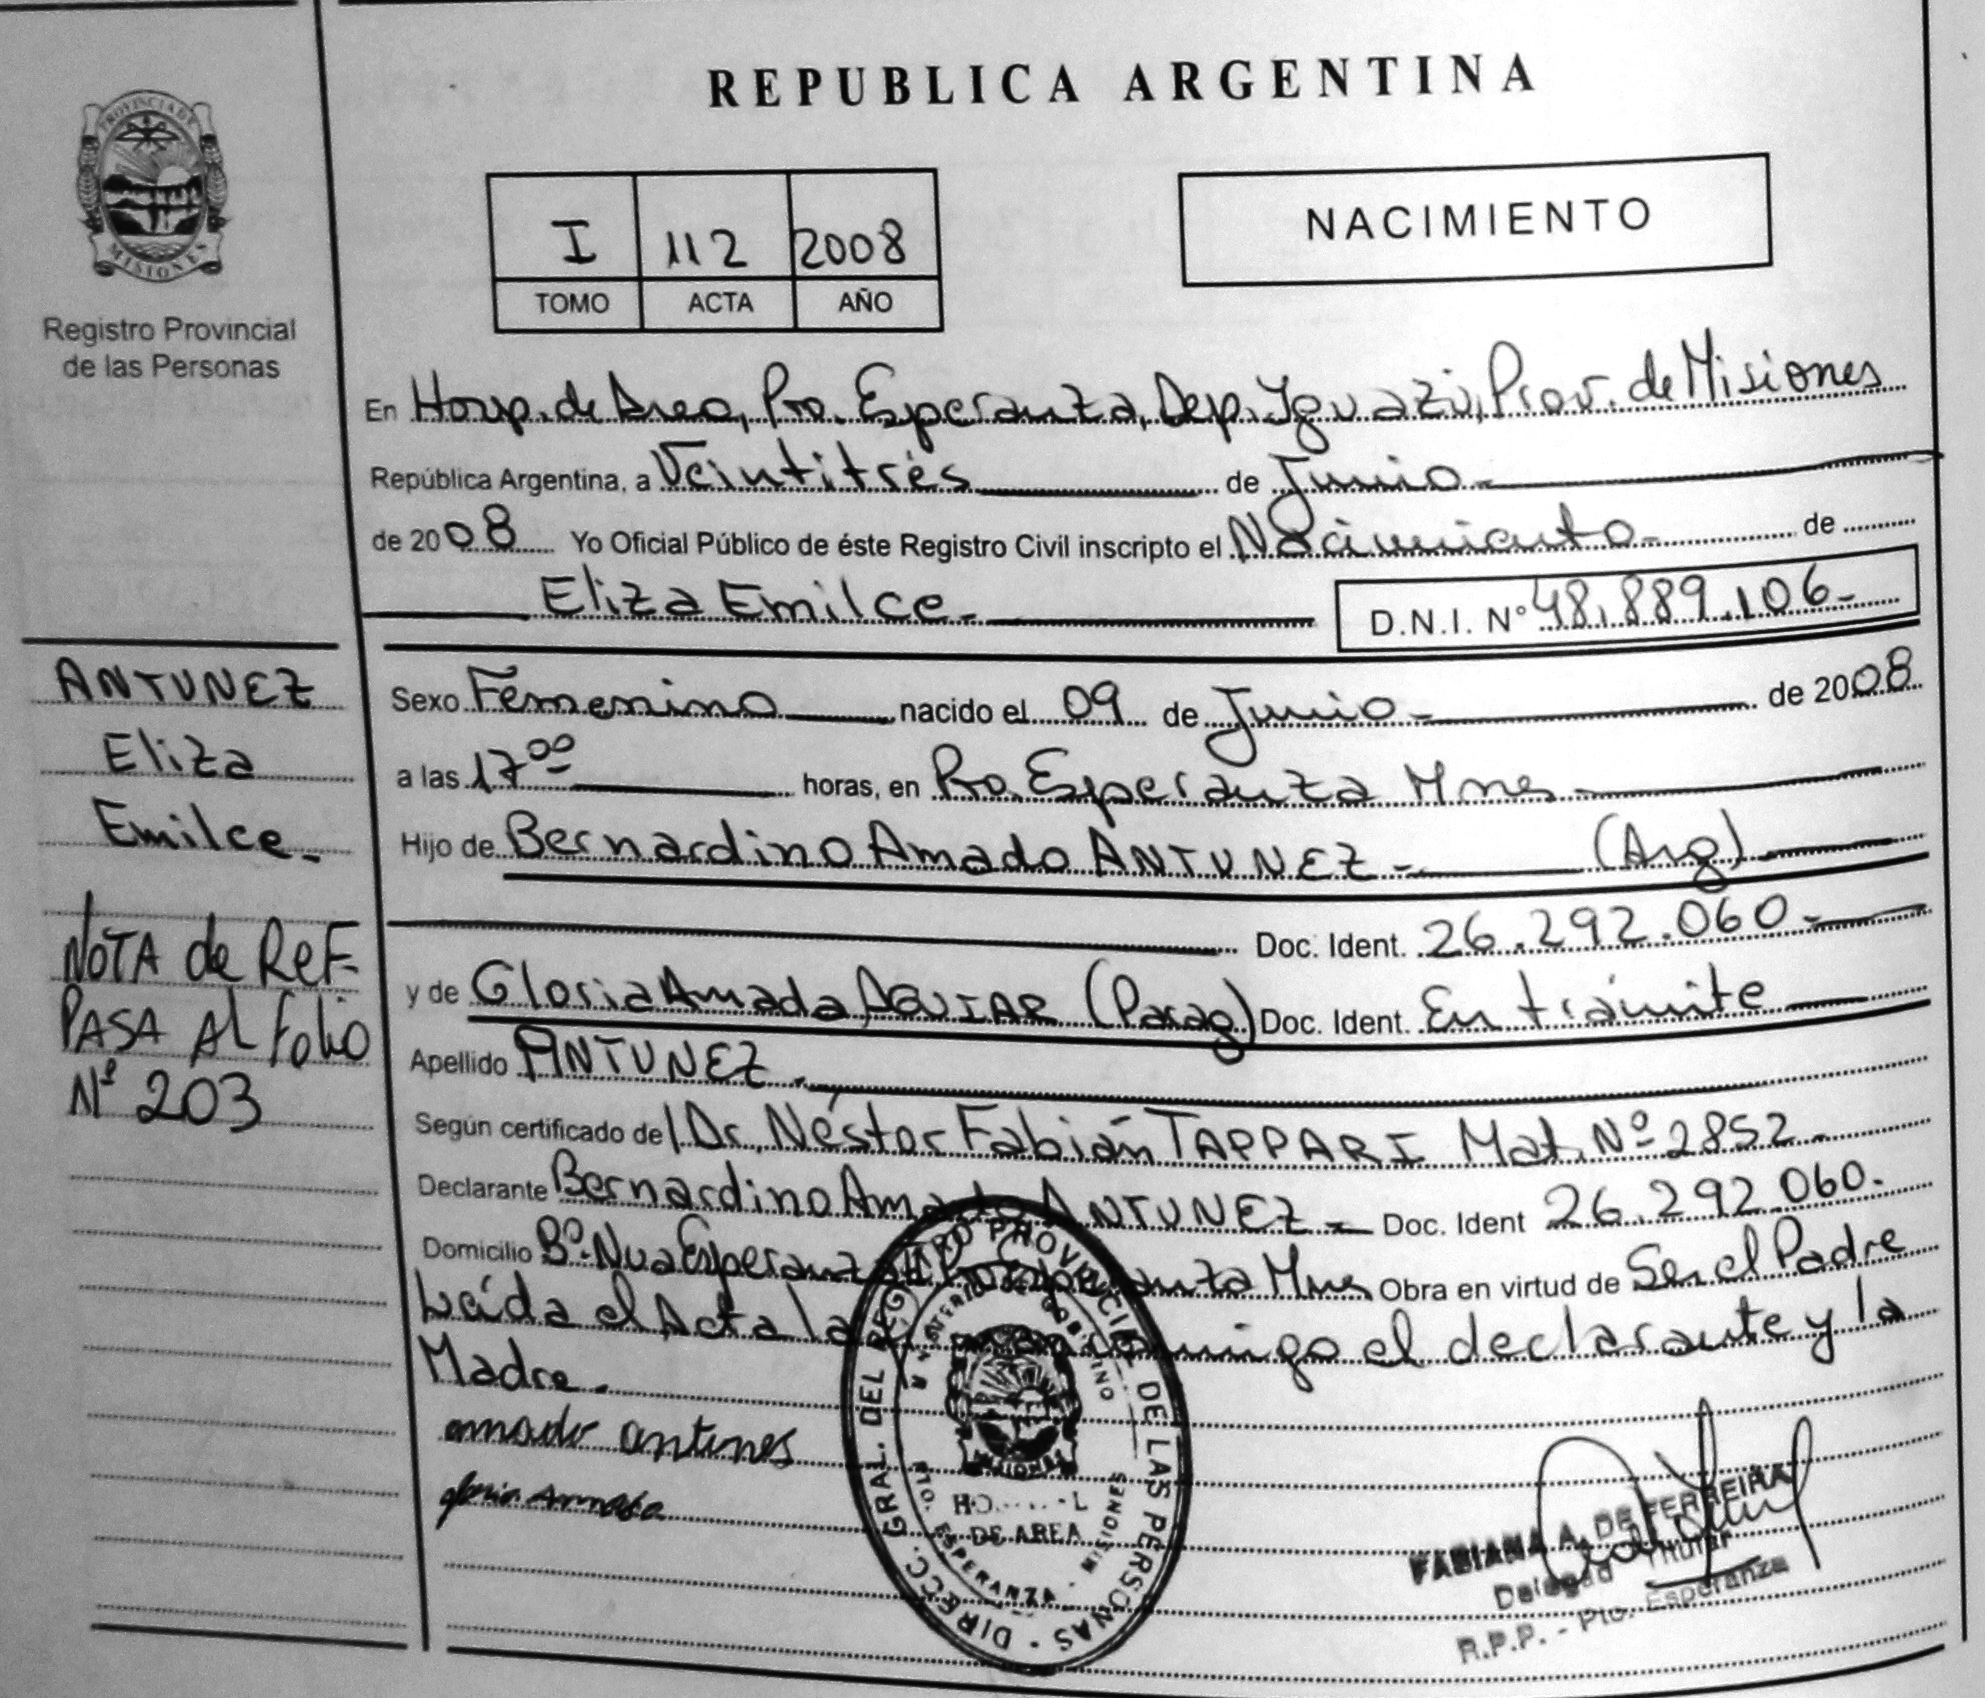 REPUBLICA ARGENTINA
PROVINCIA DE
MISIONES
Registro Provincial
de las Personas
I 112 2008
TOMO ACTA AÑO
NACIMIENTO
En Hosp. de Area, Pto. Esperanza, Dep. Iguazú, Prov. de Misiones
República Argentina, a Veintitrés de Junio.-
de 2008 Yo Oficial Público de éste Registro Civil inscripto el Nacimiento.- de
Eliza Emilce.- D.N.I. Nº 48.889.106.-
ANTUNEZ
Eliza
Emilce.-
NOTA de Ref.
PASA Al Folio
Nº 203
Sexo Femenino nacido el 09 de Junio.- de 2008
a las 17⁰⁰ horas, en Pto. Esperanza Mnes.-
Hijo de Bernardino Amado ANTUNEZ.- (Arg)
Doc. Ident. 26.292.060.-
y de Gloria Amada AGUIAR (Parag) Doc. Ident. En trámite
Apellido ANTUNEZ.-
Según certificado del Dr. Néstor Fabián TAPPARI Mat. Nº 2852.-
Declarante Bernardino Amado ANTUNEZ.- Doc. Ident 26.292.060.-
Domicilio Bº. Nva Esperanza Mnes Obra en virtud de Ser el Padre
Leída el Acta la conmigo el declarante y la
Madre.-
amado antunes
gloria Amada
DIRECC. GRAL. DEL REGISTRO PROVINCIAL DE LAS PERSONAS
MINISTERIO DE GOBIERNO
MISIONES
DE AREA
PTO. ESPERANZA - MISIONES
FABIANA A. DE FERREIRA
Titular
R.P.P. - Pto. Esperanza